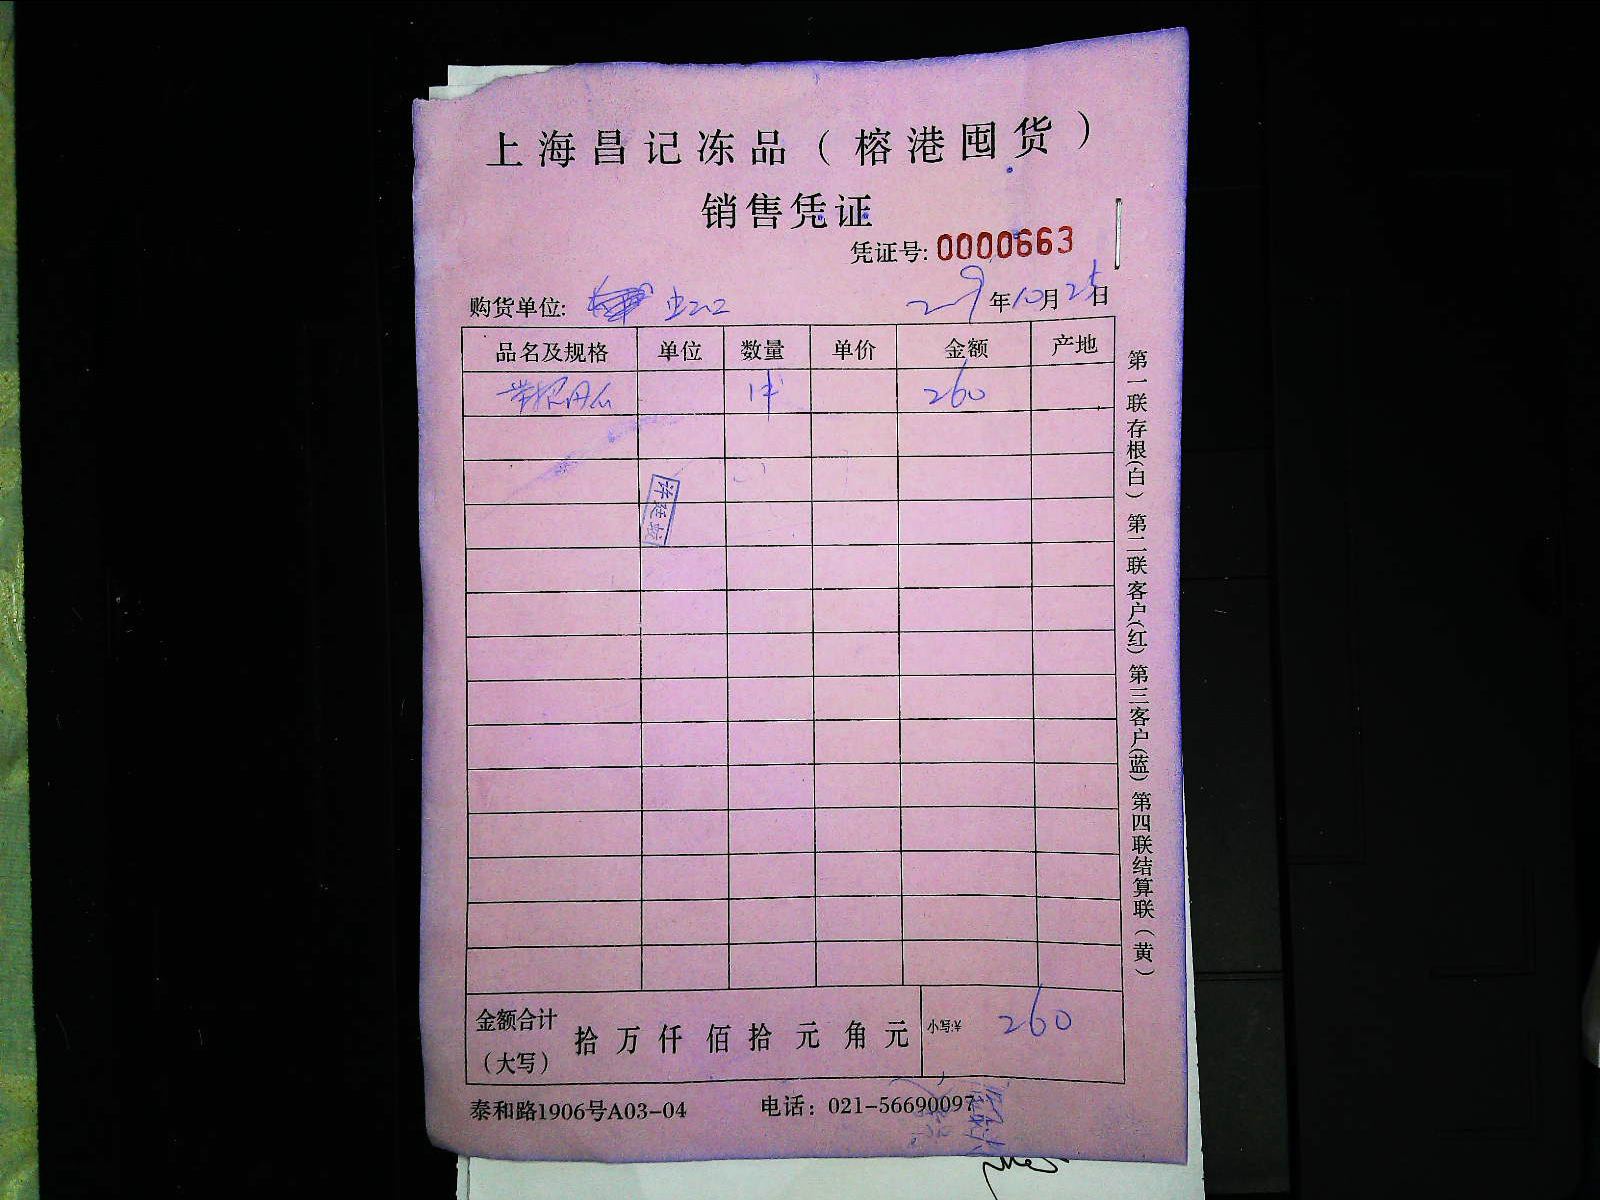 上海昌记冻品（榕港囤货）
销售凭证
凭证号: 0000663
购货单位: 年10月25日
品名及规格 单位 数量 单价 金额 产地
1件 260
许廷
金额合计（大写） 拾万仟佰拾元角元 小写:¥ 260
泰和路1906号A03-04 电话：021-56690097
第一联存根(白) 第二联客户(红) 第三客户(蓝) 第四联结算联(黄)